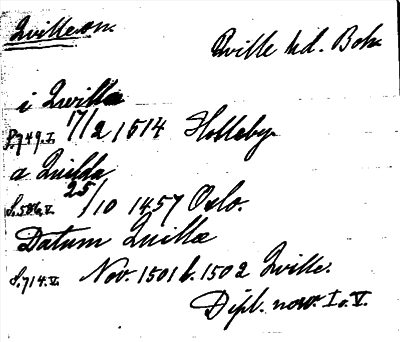 Qville sn.
Qville hd. Boh.
i Qwilla
S.749.I. 17/2 1514 Hollaby.
a Quilda
S.506.V. 25/10 1457 Oslo.
Datum Quilla
S.714.V. Nov. 1501 1502 Qville.
Dipl. norv. I o. V.